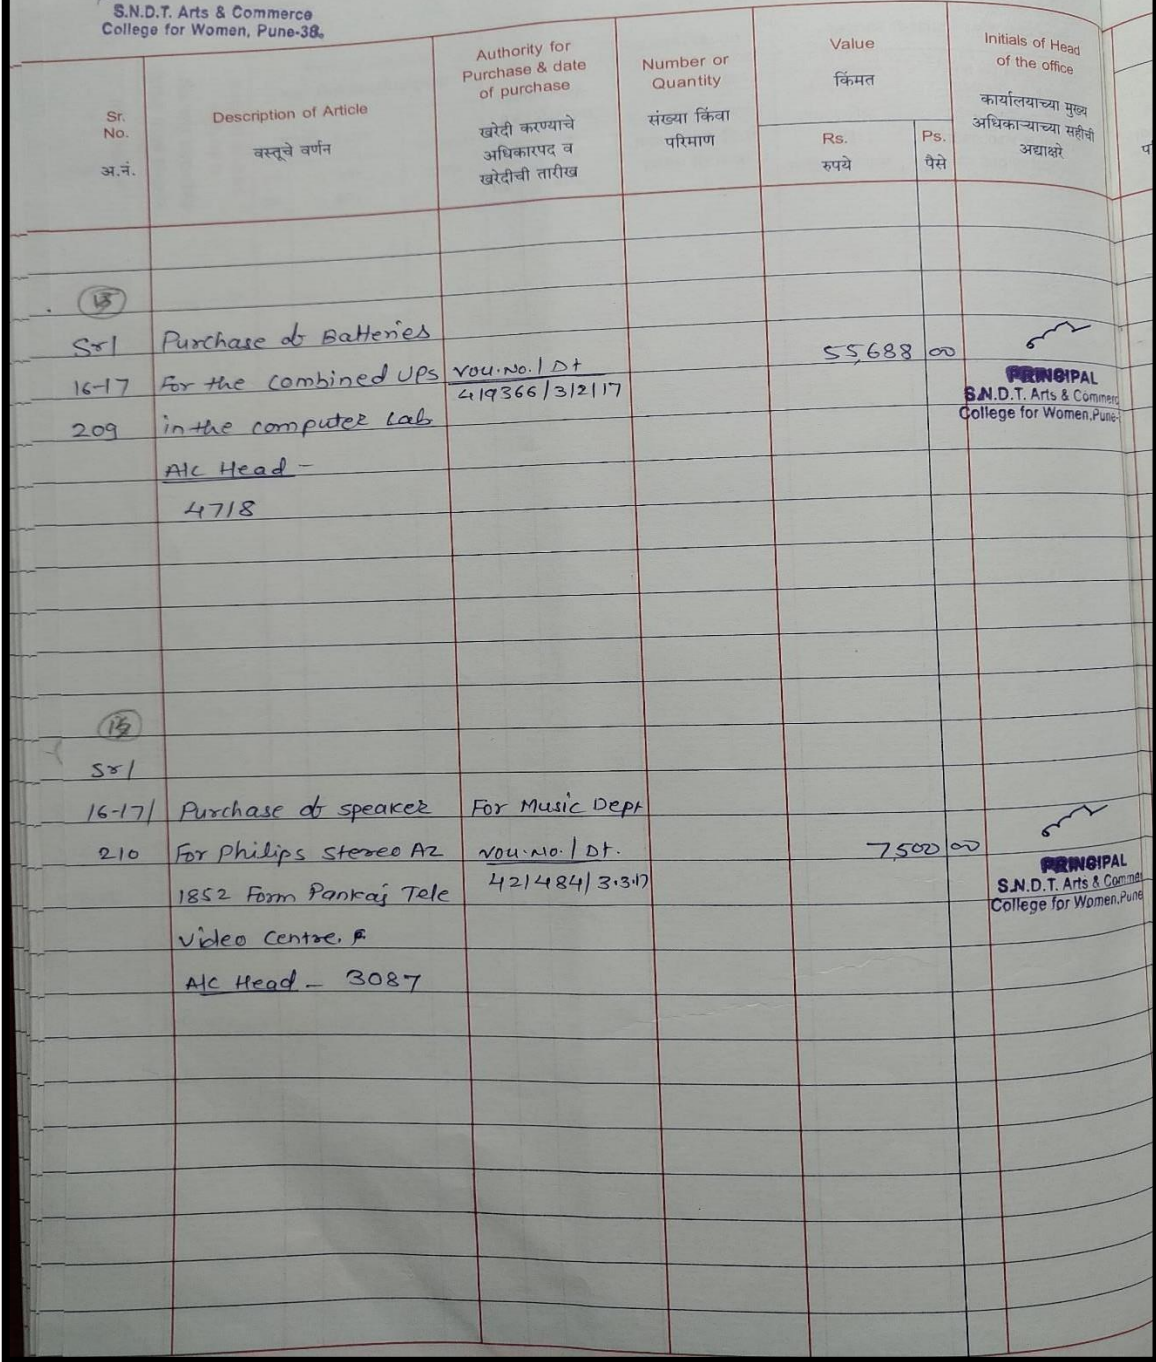 S.N.D.T. Arts & Commerce
College for Women, Pune-38.
Sr.
No.
अ.नं.
Description of Article
वस्तूचे वर्णन
Authority for
Purchase & date
of purchase
खरेदी करण्याचे
अधिकारपद व
खरेदीची तारीख
Number or
Quantity
संख्या किंवा
परिमाण
Value
किंमत
Rs.
रुपये
Ps.
पैसे
Initials of Head
of the office
कार्यालयाच्या मुख्य
अधिकाऱ्याच्या सहीची
अद्याक्षरे
Sr/
16-17
209
Purchase of Batteries
For the combined UPS
in the computer Lab
A/c Head -
4718
Vou.No. / Dt
419366/3/2/17
55,688 00
PRINCIPAL
S.N.D.T. Arts & Commerc
College for Women, Pune-
Sr/
16-17/
210
Purchase of speaker
For Philips stereo AZ
1852 Form Pankaj Tele
Video Centre.
A/c Head - 3087
For Music Dept
Vou.No. / Dt.
421484/3.3.17
7,500 00
PRINCIPAL
S.N.D.T. Arts & Comme
College for Women, Pune